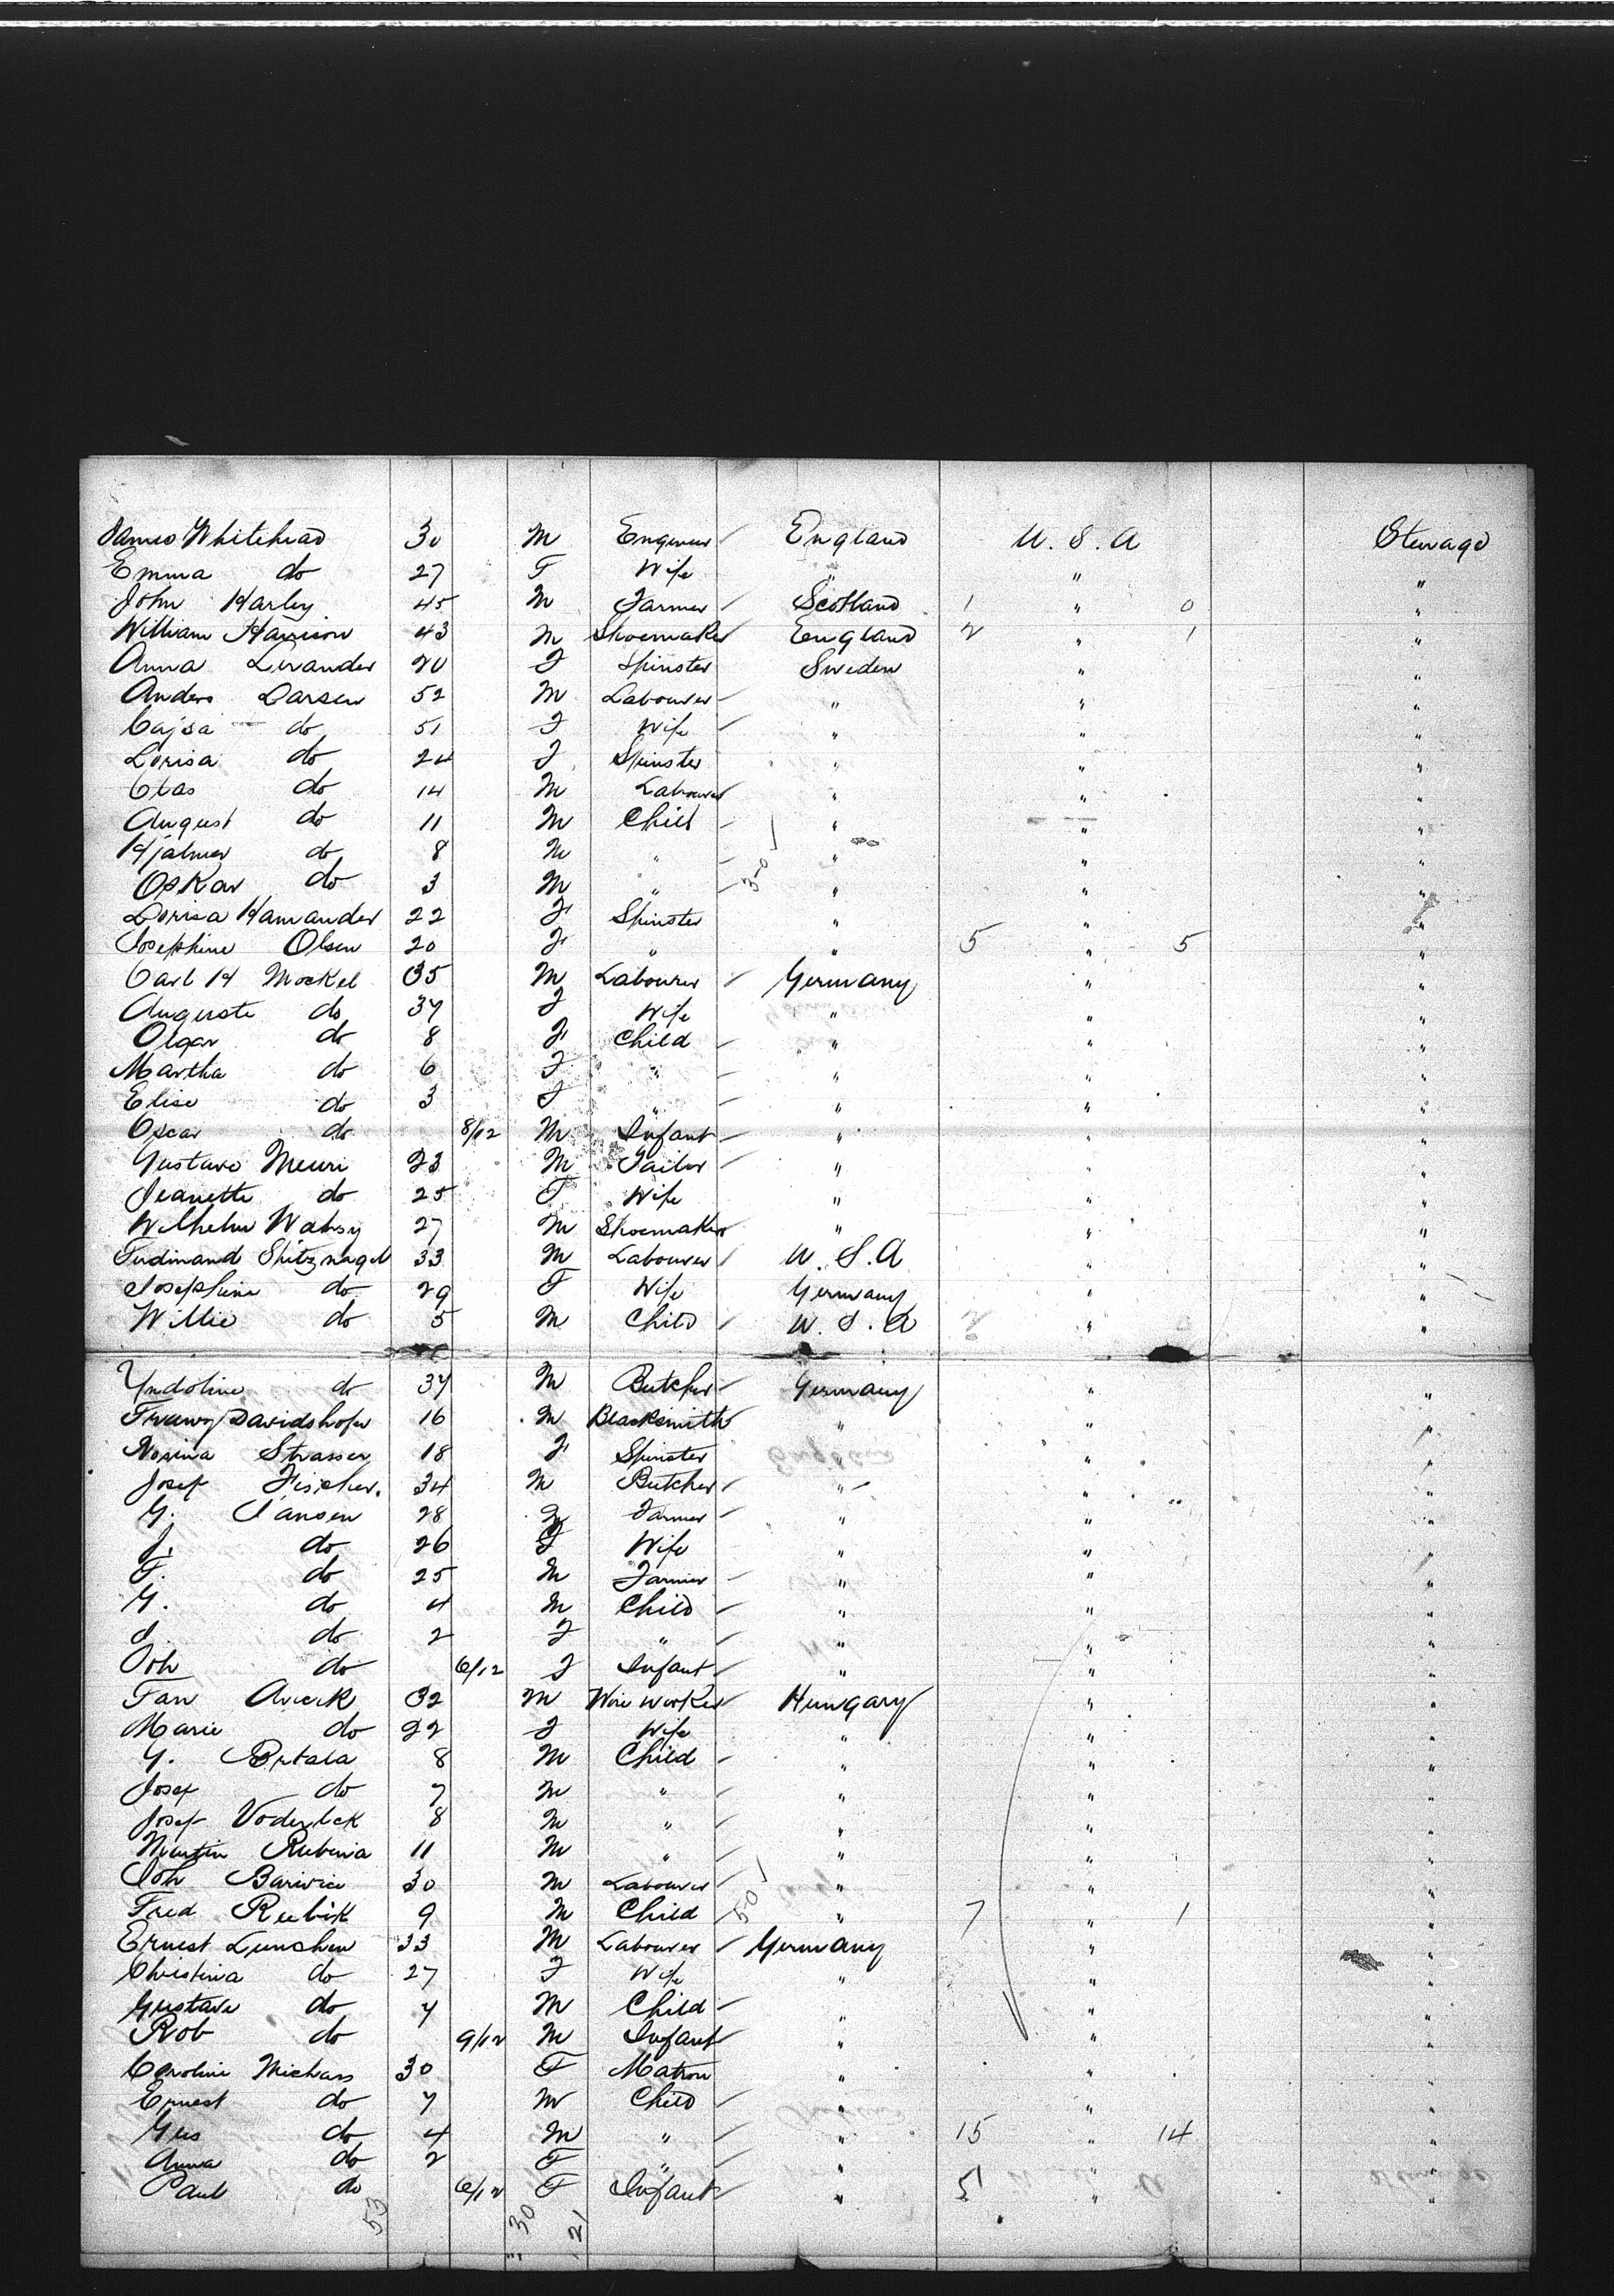 James Whitehead 30 M Engineer England U. S. A Steerage
Emma do 27 F Wife " " "
John Harley 45 M Farmer Scotland 1 " 0 "
William Harrison 43 M Shoemaker England 2 " 1 "
Anna Levander 20 F Spinster Sweden " "
Anders Larsen 52 M Labourer " " "
Cajsa do 51 F Wife " " "
Lovisa do 24 F Spinster " " "
Clas do 14 M Labourer " " "
August do 11 M Child " " "
Hjalmer do 8 M " " " "
Oskar do 3 M " " " "
Lovisa Hamander 22 F Spinster " " "
Josephine Olsen 20 F " " 5 " 5 "
Carl H Mockel 35 M Labourer Germany " "
Auguste do 37 F Wife " " "
Olgar do 8 F Child " " "
Martha do 6 F " " " "
Elise do 3 F " " " "
Oscar do 8/12 M Infant " " "
Gustave Meuri 23 M Tailor " " "
Jeanette do 25 F Wife " " "
Wilhelm 27 M Shoemaker " " "
Ferdinand Spitznagel 33 M Labourer U. S. A " "
Josephine do 29 F Wife Germany " "
Willie do 5 M Child U. S. A " "
do 37 M Butcher Germany " "
Davidshofer 16 M Blacksmith " " "
Rosina Strasser 18 F Spinster " " "
Josef Fischer. 34 M Butcher " " "
G. Jansen 28 Farmer " " "
J. do 26 F Wife " " "
F. do 25 M Farmer " " "
G. do 4 M Child " " "
J. do 2 F " " " "
Joh do 6/12 F Infant " " "
32 M Wire worker Hungary " "
Marie do 22 F Wife " " "
G. 8 M Child " " "
Josef do 7 M " " " "
Josef 8 M " " " "
Martin Rubina 11 M " " " "
Joh 30 M Labourer " " "
Fred Rubik 9 M Child " 7 " 1 "
Ernest Lunshen 33 M Labourer Germany " "
Christina do 27 F Wife " " "
Gustave do 4 M Child " " "
Rob do 9/12 M Infant " " "
Caroline 30 F Matron " " "
Ernest do 7 M Child " " "
Gus do 4 M " " 15 " 14 "
Anna do 2 F " " " "
Paul do 6/12 F Infant " 51 " "
53 30 21